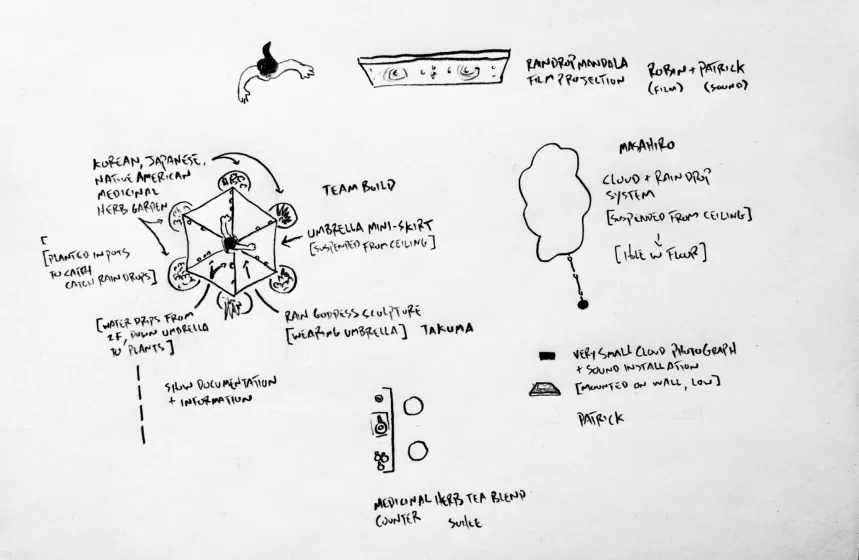 RAINDROP MANDALA
FILM PROJECTION
ROBIN + PATRICK
(FILM) (SOUND)
KOREAN, JAPANESE,
NATIVE AMERICAN
MEDICINAL
HERB GARDEN
[PLANTED IN POTS
TO CATCH
CATCH RAINDROPS]
TEAM BUILD
UMBRELLA MINI-SKIRT
[SUSPENDED FROM CEILING]
MASAHIRO
CLOUD + RAINDROP
SYSTEM
[SUSPENDED FROM CEILING]
[HOLE IN FLOOR]
[WATER DRIPS FROM
2F, DOWN UMBRELLA
TO PLANTS]
RAIN GODDESS SCULPTURE
[WEARING UMBRELLA] TAKUMA
SHOW DOCUMENTATION
+ INFORMATION
VERY SMALL CLOUD PHOTOGRAPH
+ SOUND INSTALLATION
[MOUNTED ON WALL, LOW]
PATRICK
MEDICINAL HERB TEA BLEND
COUNTER